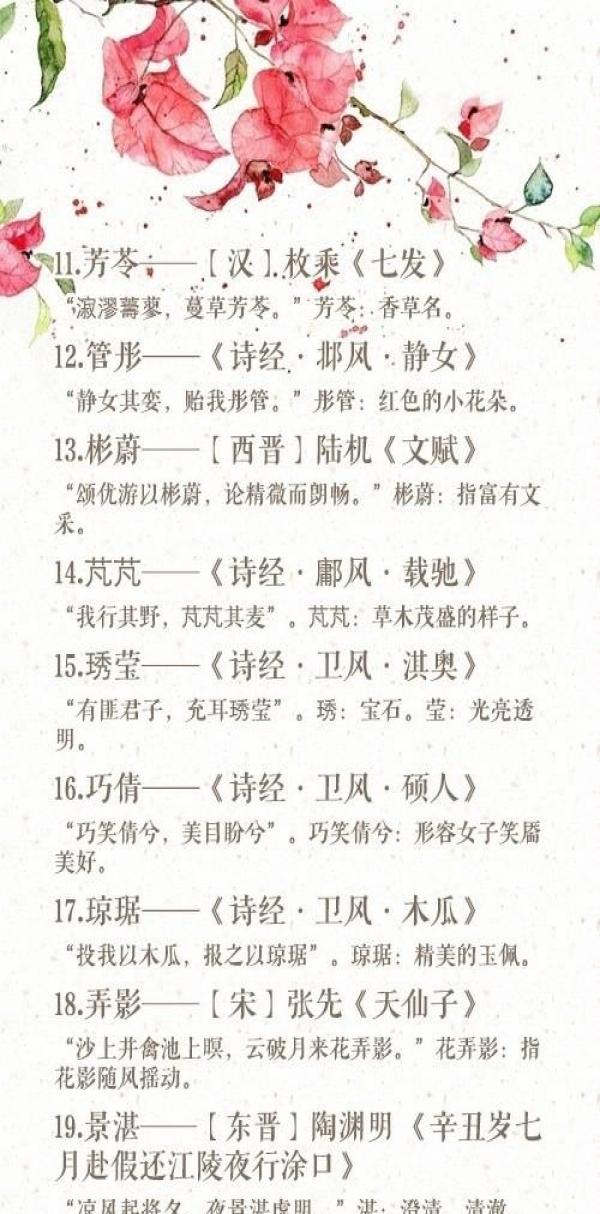 11.芳苓——［汉］枚乘《七发》
“潊漻薵蓼，蔓草芳苓。”芳苓：香草名。
12.管彤——《诗经·邶风·静女》
“静女其娈，贻我彤管。”彤管：红色的小花朵。
13.彬蔚——［西晋］陆机《文赋》
“颂优游以彬蔚，论精微而朗畅。”彬蔚：指富有文
采。
14.芃芃——《诗经·鄘风·载驰》
“我行其野，芃芃其麦”。芃芃：草木茂盛的样子。
15.琇莹——《诗经·卫风·淇奥》
“有匪君子，充耳琇莹”。琇：宝石。莹：光亮透
明。
16.巧倩——《诗经·卫风·硕人》
“巧笑倩兮，美目盼兮”。巧笑倩兮：形容女子笑靥
美好。
17.琼琚——《诗经·卫风·木瓜》
“投我以木瓜，报之以琼琚”。琼琚：精美的玉佩。
18.弄影——［宋］张先《天仙子》
“沙上并禽池上暝，云破月来花弄影。”花弄影：指
花影随风摇动。
19.景湛——［东晋］陶渊明《辛丑岁七
月赴假还江陵夜行涂口》
“凉风起将夕，夜景湛虚明。”湛：澄清，清澈。